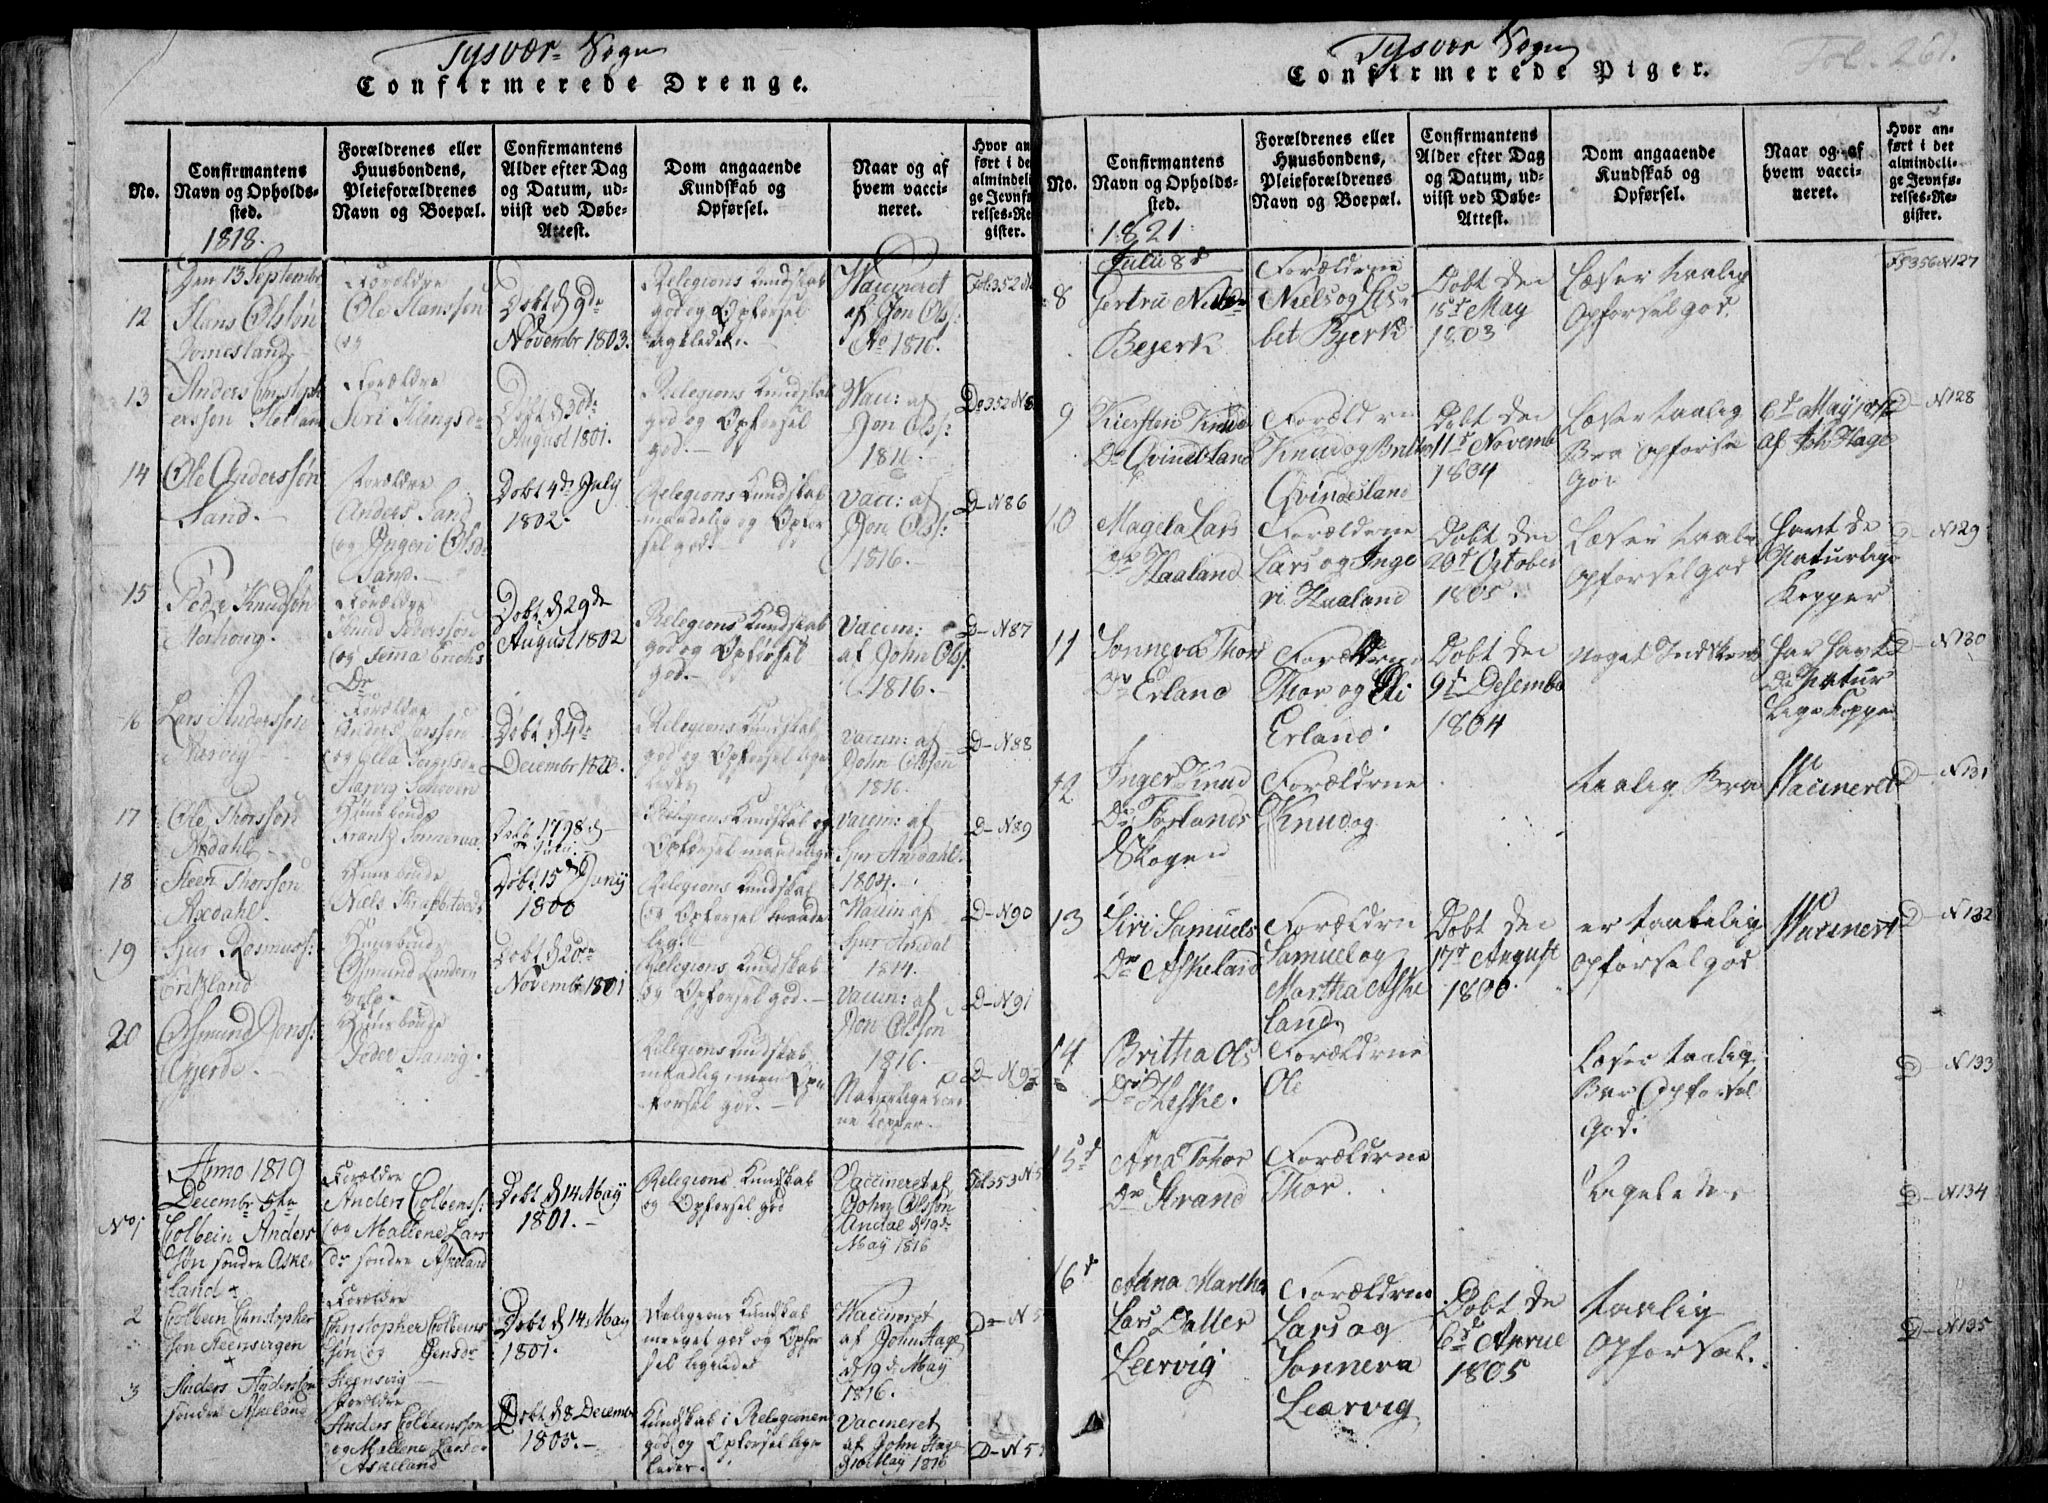 Tysvær Sogn
Confirmerede Drenge.
No.
Confirmantens Navn og Opholds-sted.
Forældrenes eller Huusbondens, Pleieforældrenes Navn og Boepæl.
Confirmantens Alder efter Dag og Datum, ud-viist ved Døbe-Attest.
Dom angaaende Kundskab og Opførsel.
Naar og af hvem vacci-neret.
Hvor an ført i de almindeli ge Jevnfø relses-Re gister.
1818.
Den 13 September
12
Hans Olsøn
Forældre
Ole Hanssøn
og
Døbt d 9de
Novembr 1803.
Religions Kundskab
god og Opførsel
ligeledes.
Vaccineret
af Jon Ols:
Ao 1816.
Fol: 352 N
13
Forældre
Døbt d 30de
August 1801.
Religions Kundskab
god og Opførsel
god.
Vacc: af
Jon Ols:
1816.
Do 352 N 8
14
Ole Anderssøn
Sand.
Forældre
Anders Sand
og Ingeri Olsdr
Sand.
Døbt 4de July
1802.
Religions Kundskab
maadelig og Opfør
sel god.
Vacc: af
Jon Ols:
1816.
D- N 86
15
Peder Knudsøn
Forældre
Døbt d 29de
August 1802
Religions Kundskab
god og Opførsel
god.
Vaccin:
af John Ols:
1816.
D- N 87
16
Lars Anderssøn
Forældre
Anders Larssøn
Døbt d 4de
December
Religions Kundskab
god og Opførsel lige
ledes
Vaccin: af
John Olssøn
1816.
D- N 88
17
Ole Thorssøn
Axdahl
Huusbonde
Døbt 1798 d
Religions Kundskab og
Opførsel maadelige
Vaccin: af
Sjur Amdahl
1804.
D- N 89
18
Steen Thorssøn
Axdahl.
Huusbonde
Niels
Døbt 15de Juny
1800
Religions Kundskab
og Opførsel maade
lig.
Vaccin af
Sjur Amdal
1814.
D- N 90
19
Sjur Rasmuss:
Huusbonde
Osmund
Døbt d 20de
Novembr 1801
Religions Kundskab
og Opførsel god.
Vaccin: af
Jon Olssøn
1816.
D- N 91
20
Osmund Jonss:
Gjerde.
Huusbonde
Peder
Religions Kundskab
maadelig, men Op
førsel god.
Naturlige
Kopper.
D- N 92
Anno 1819
Decembr 5te
No 1
Colbein Anders
søn søndre Aske
land
Forældre
Anders Colbenss:
og Mallene Lars
dr søndre Askeland
Døbt d 14 May
1801.
Religions Kundskab
og Opførsel god
Vaccineret af
John Olssøn
Amdal d 19de
May 1816
Fol 353 N 5
2
Colbein Christopher
søn Steensvigen
Forældre
Christopher Colbens
søn og Jensdr
Steensvig
Døbt d 14 May
1801.
Religions Kundskab
meeget god og Opfør
sel ligeledes
Vaccineret
af John Hage
d 19de May
1816.
D- N 5
3
Anders Anderssøn
søndre Askeland
Forældre
Anders Colbenssøn
og Mallene Larsdr
Askeland
Døbt d 8 Decembr
1805.
Kundskab i Religionen
god og Opførsel lige
ledes.
Vaccineret
af John Hage
May 1816
D- N 5
Tysvær Sogn
Confirmerede Piger.
Fol. 261.
No.
Confirmantens Navn og Opholds-sted.
Forældrenes eller Huusbondens, Pleieforældrenes Navn og Boepæl.
Confirmantens Alder efter Dag og Datum, ud-viist ved Døbe-Attest.
Dom angaaende Kundskab og Opførsel.
Naar og af hvem vacci-neret.
Hvor an-ført i det almindeli-ge Jevnfø-relses-Re-gister.
1821
Julii 8d
8
Gertru Niels
Bejerk
Forældrne
Niels og Lis
bet Bjerk
Døbt den
15d May
1803
Læser taalig
Opførsel god
Fo 356 N 127
9
Kiersten Knud
Dr Qvindesland
Forældrne
Knud og Britha
Qvindesland
Døbt den
11d Novemb
1804
Læser taalig
Bra opførsel
god
6d May 1812
af Joh Hage
D- N 128
10
Magela Lars
Dr Haaland
Forældrne
Lars og Inge
ri Haaland
Døbt den
29d October
1805.
Læser taalig
opførsel god
Havt de
Naturlige
Kopper
D- N 129
11
Sonneva Thors
Dr Erland
Forældrne
Thor og Eli
Erland.
Døbt den
9d Desember
1804
Noget Indskrenk
har havt
de Natur
lige Kopper
D- N 130
12
Inger Knud
Dr Førlands
Skogen
Forældrne
Knud og
taalig Bra
Vacineret
D- N 131
13
Siri Samuels
Dr Askeland
Forældrn
Samuel og
Martha Aske
land
Døbt den
17d August
1806.
er taatelig
opførsel god
Vacinert
D- N 132
14
Britha Ols
Dr Heske.
Forældrne
Ole
Læser taalig
Bra Opførsel
God.
D- N 133
15d
Ana Tohor
Dr Strand
Forældrne
Thor.
Ligeledes
D- N 134
16d
Anna Martha
Lars Datter
Leervig
Forældrne
Lars og
Sonneva
Leervig
Døbt de
6d Aprue
1805
taalig
Opførsel.
D- N 135